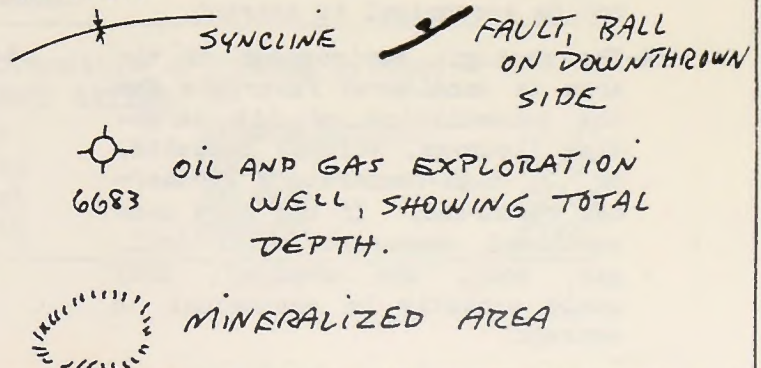 SYNCLINE
FAULT, BALL
ON DOWNTHROWN
SIDE
6683
OIL AND GAS EXPLORATION
WELL, SHOWING TOTAL
DEPTH.
MINERALIZED AREA